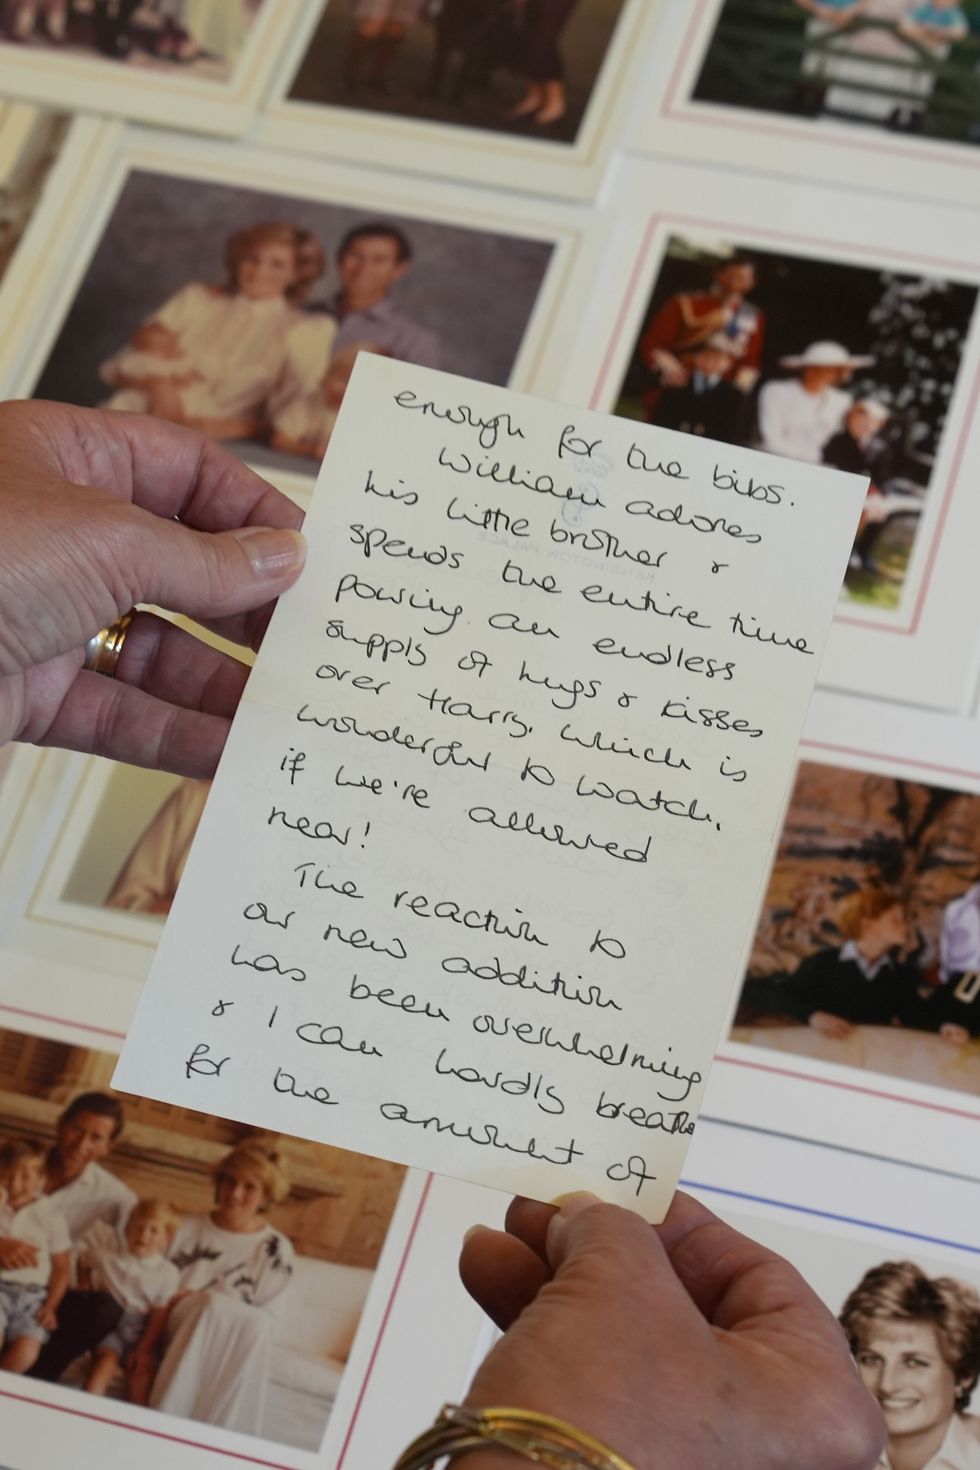 enough for the bibs.
William adores
his little brother &
spends the entire time
pouring an endless
supply of hugs & kisses
over Harry, which is
wonderful to watch,
if we're allowed
near!
The reaction to
our new addition
has been overwhelming
& I can hardly breathe
for the amount of
KENSINGTON PALACE